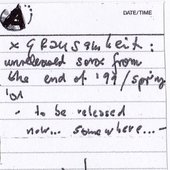 DATE/TIME
x GRAUSAMKEIT:
unreleased songs from
the end of '99/spring
'01
- to be released
now... somewhere...-